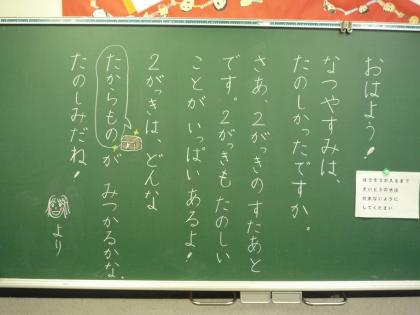 おはよう!
なつやすみは、
たのしかったですか。
さあ、2がっきのすたあと
です。2がっきもたのしい
ことがいっぱいあるよ!
2がっきは、どんな
たからものが みつかるかな。
たのしみだね!
より